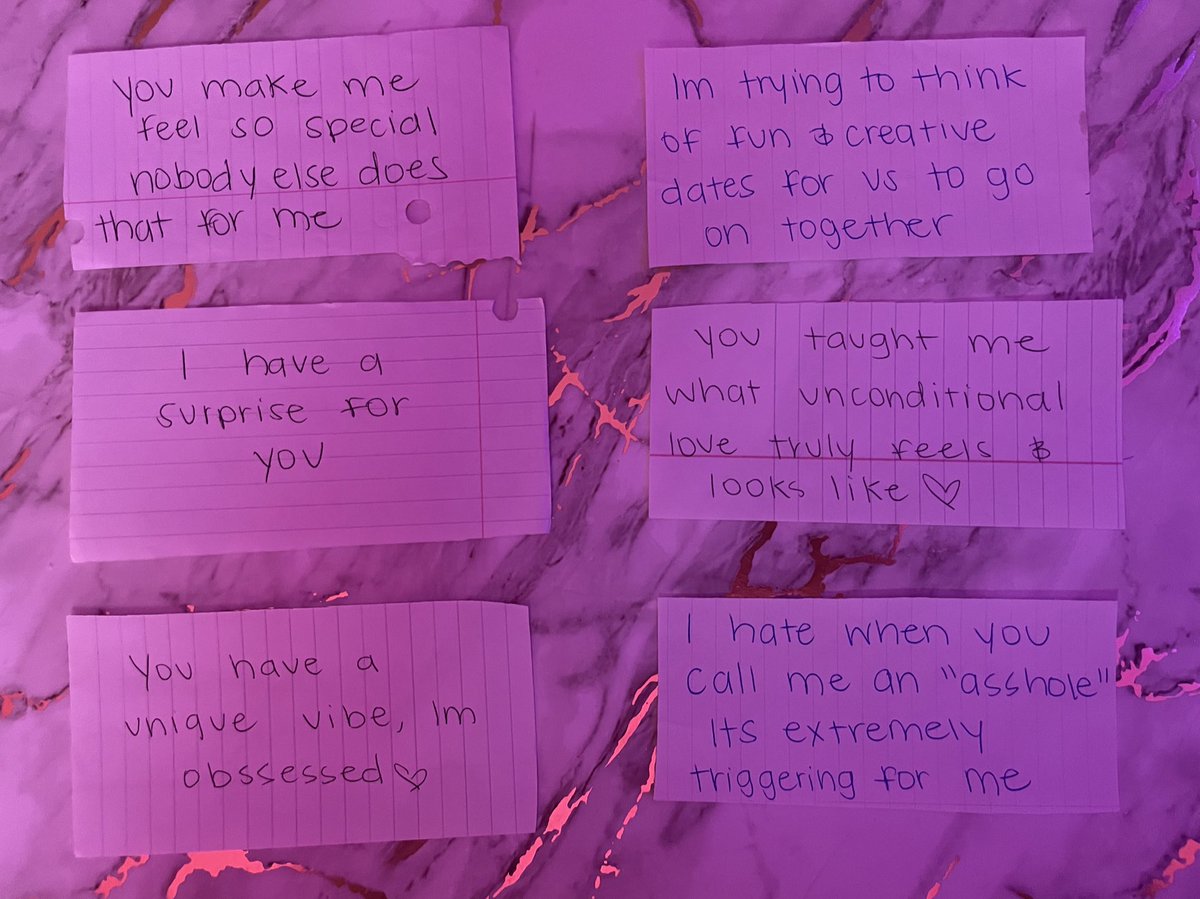 You make me
feel so special
nobody else does
that for me
Im trying to think
of fun & creative
dates for us to go
on together
I have a
surprise for
you
you taught me
what unconditional
love truly feels &
looks like ♡
You have a
unique vibe, Im
obssessed ♡
I hate when you
call me an "asshole"
Its extremely
triggering for me